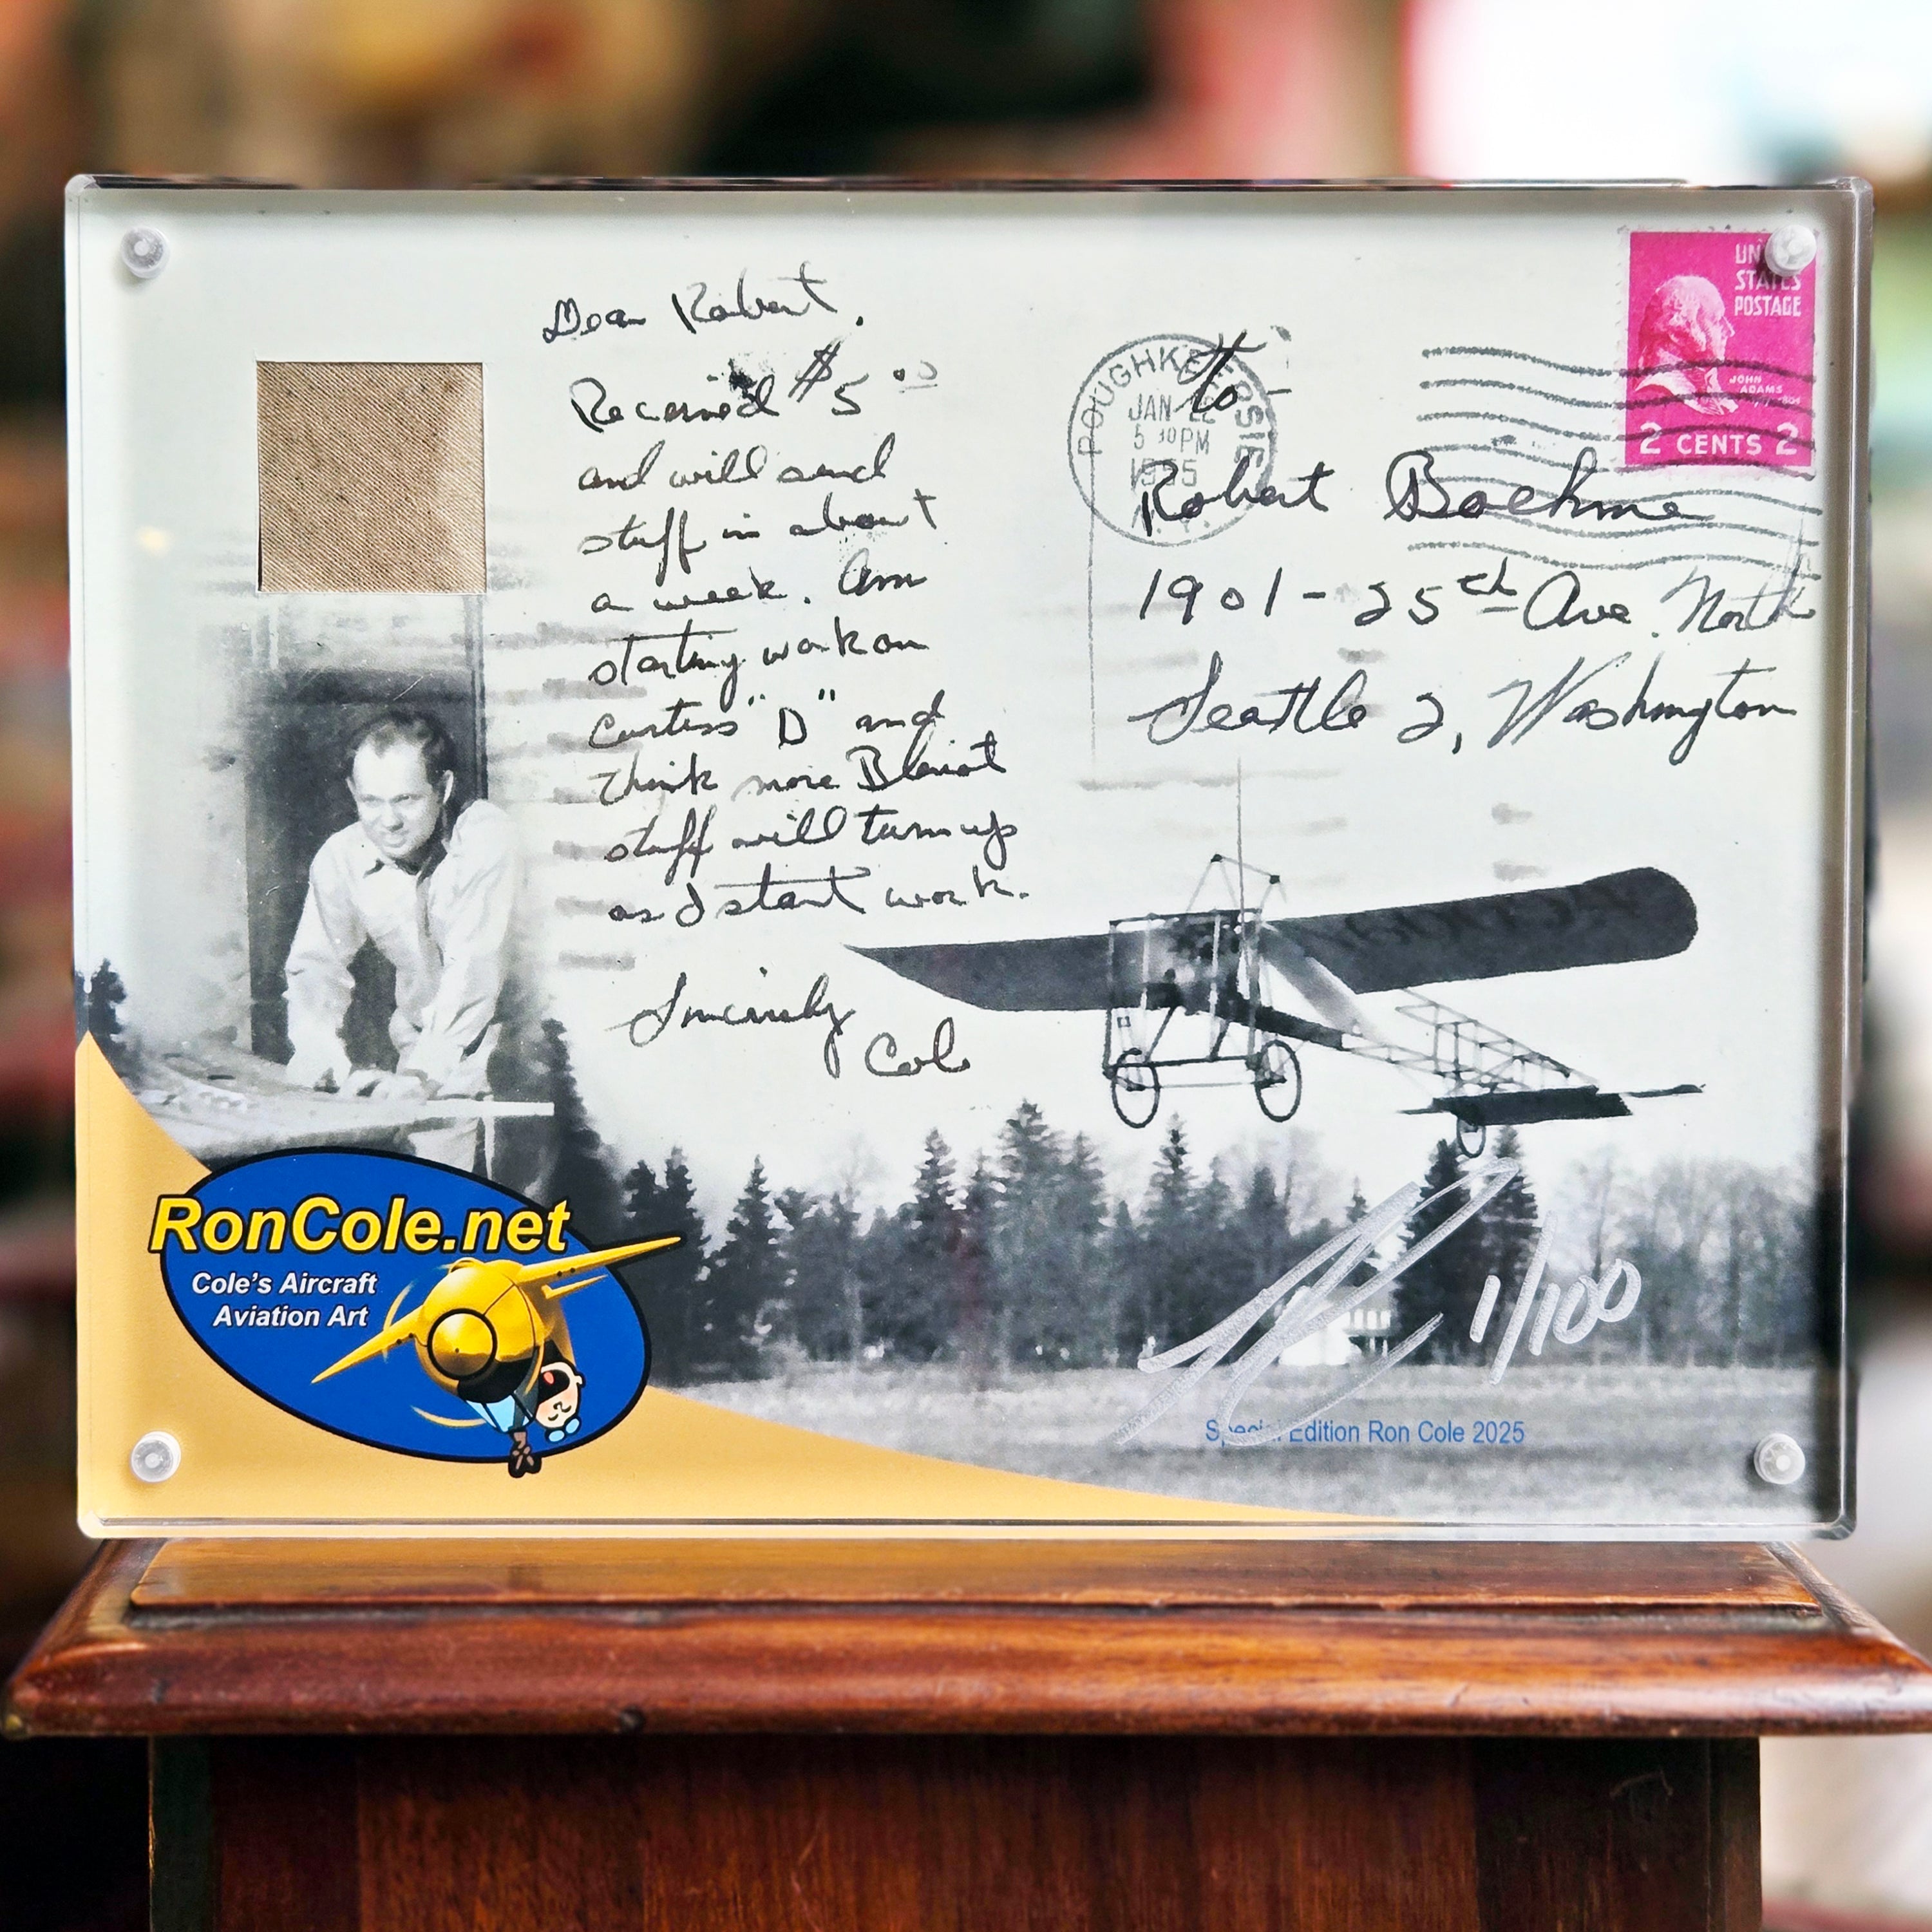 Dear Robert,
Received $5.00
and will send
stuff in about
a week. Am
starting work on
Curtiss "D" and
think more Bleriot
stuff will turn up
as I start work.
Sincerely
Cole
POUGHKEEPSIE
JAN 22
5 30 PM
1955
N.Y.
to
UNITED
STATES
POSTAGE
JOHN
ADAMS
2 CENTS 2
Robert Boehme
1901 - 25th Ave. North
Seattle 2, Washington
RonCole.net
Cole's Aircraft
Aviation Art
1/100
Special Edition Ron Cole 2025